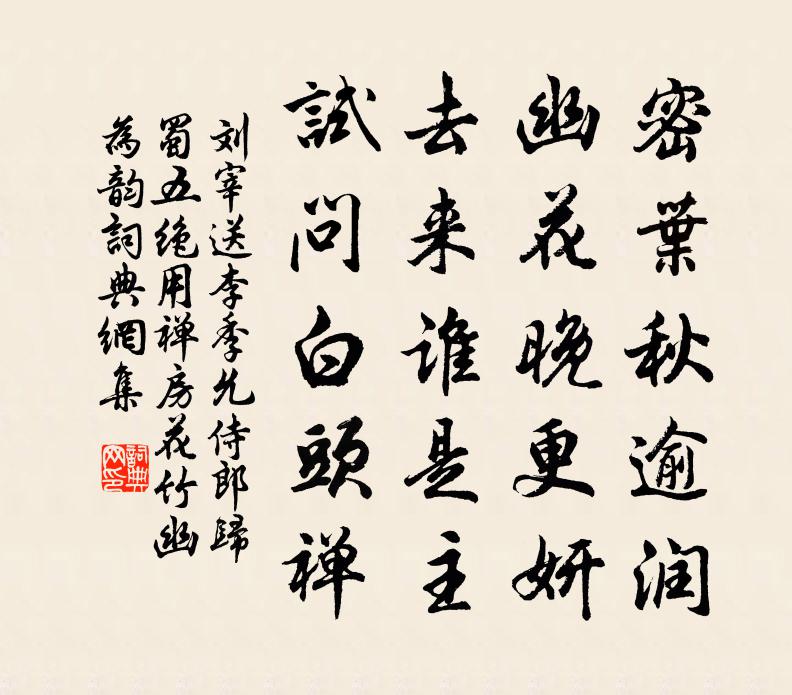 密葉秋逾润
幽花晚更妍
去来谁是主
試問白頭禅
刘宰送李季允侍郎歸
蜀五绝用禅房花竹幽
為韵詞典網集
詞典网印